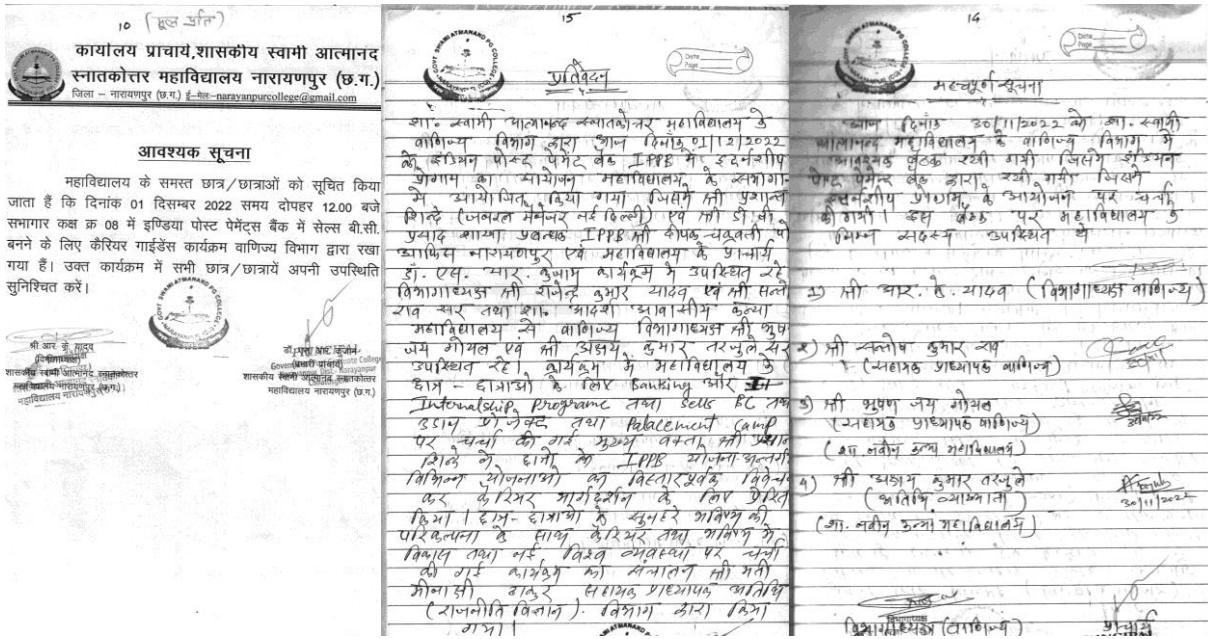 10 (मूल प्रति)
कार्यालय प्राचार्य,शासकीय स्वामी आत्मानंद
स्नातकोत्तर महाविद्यालय नारायणपुर (छ.ग.)
जिला – नारायणपुर (छ.ग.) ई–मेल–narayanpurcollege@gmail.com
आवश्यक सूचना
महाविद्यालय के समस्त छात्र/छात्राओं को सूचित किया
जाता हैं कि दिनांक 01 दिसम्बर 2022 समय दोपहर 12.00 बजे
सभागार कक्ष क्र 08 में इण्डिया पोस्ट पेमेंट्स बैंक में सेल्स बी.सी.
बनने के लिए कैरियर गाईडेंस कार्यक्रम वाणिज्य विभाग द्वारा रखा
गया हैं। उक्त कार्यक्रम में सभी छात्र/छात्रायें अपनी उपस्थिति
सुनिश्चित करें।
श्री आर के यादव
शासकीय स्वामी आत्मानंद स्नातकोत्तर
महाविद्यालय नारायणपुर (छ.ग.)
(प्रभारी प्राचार्य)
शासकीय स्वामी आत्मानंद स्नातकोत्तर
महाविद्यालय नारायणपुर (छ.ग.)
15
Date
Page
प्रतिवेदन
शा. स्वामी आत्मानंद स्नातकोत्तर महाविद्यालय के
वाणिज्य विभाग द्वारा आज दिनाँक 01/12/2022
को इंडियन पोस्ट पेमेंट बैंक IPPB में इंटर्नशीप
प्रोग्राम का आयोजन महाविद्यालय के सभागा
में आयोजित किया गया जिसमें श्री प्रशान्त
शिन्दे (जनरल मैनेजर नई दिल्ली) एवं श्री डी. बी.
प्रसाद शाखा प्रबन्धक IPPB श्री दीपक चक्रवर्ती पो
आफिस नारायणपुर एवं महाविद्यालय के प्राचार्य
डॉ. एस. आर. कुंजाम कार्यक्रम में उपस्थित रहे
विभागाध्यक्ष श्री राजेन्द्र कुमार यादव एवं श्री सन्तो
राव सर तथा शा. आदर्श आवासीय कन्या
महाविद्यालय से वाणिज्य विभागाध्यक्ष श्री भूष
जय गोयल एवं श्री अजय कुमार तरजुले सर
उपस्थित रहे। कार्यक्रम में महाविद्यालय के
छात्र - छात्राओं के लिए Banking और
Internalship Programe तथा Sells BC तथ
प्रोजेक्ट तथा Palacement Camp
पर चर्चा की गई मुख्य वक्ता श्री प्रशान
शिन्दे ने छात्रों को IPPB योजना अन्तर्ग
विभिन्न योजनाओं का विस्तारपूर्वक विवेच
कर करियर मार्गदर्शन के लिए प्रेरित
किया। छात्र-छात्राओं के सुनहरे भविष्य की
परिकल्पना के साथ करियर तथा भविष्य में
विकास तथा नई विश्व व्यवस्था पर चर्चा
की गई कार्यक्रम का संचालन श्री मती
मीनाक्षी ठाकुर सहायक प्राध्यापक अतिथि
(राजनीति विज्ञान) विभाग द्वारा किया
गया।
14
Date
Page
महत्वपूर्ण सूचना
आज दिनाँक 30/11/2022 को शा. स्वामी
आत्मानंद महाविद्यालय के वाणिज्य विभाग में
आवश्यक बैठक रखी गयी जिसमें इंडियन
पोस्ट पेमेन्ट बैंक द्वारा रखी गयी जिसमें
इंटर्नशीप प्रोग्राम के आयोजन पर चर्चा
की गयी। इस बैठक पर महाविद्यालय के
निम्न सदस्य उपस्थित थे
१) श्री आर. के. यादव (विभागाध्यक्ष वाणिज्य)
२) श्री सन्तोष कुमार राव
(सहायक प्राध्यापक वाणिज्य)
३) श्री भूषण जय गोयल
(सहायक प्राध्यापक वाणिज्य)
(शा. नवीन कन्या महाविद्यालय)
४) श्री अजय कुमार तरजुले
(अतिथि व्याख्याता)
30/11/2022
(शा. नवीन कन्या महाविद्यालय)
विभागाध्यक्ष (वाणिज्य)
प्राचार्य